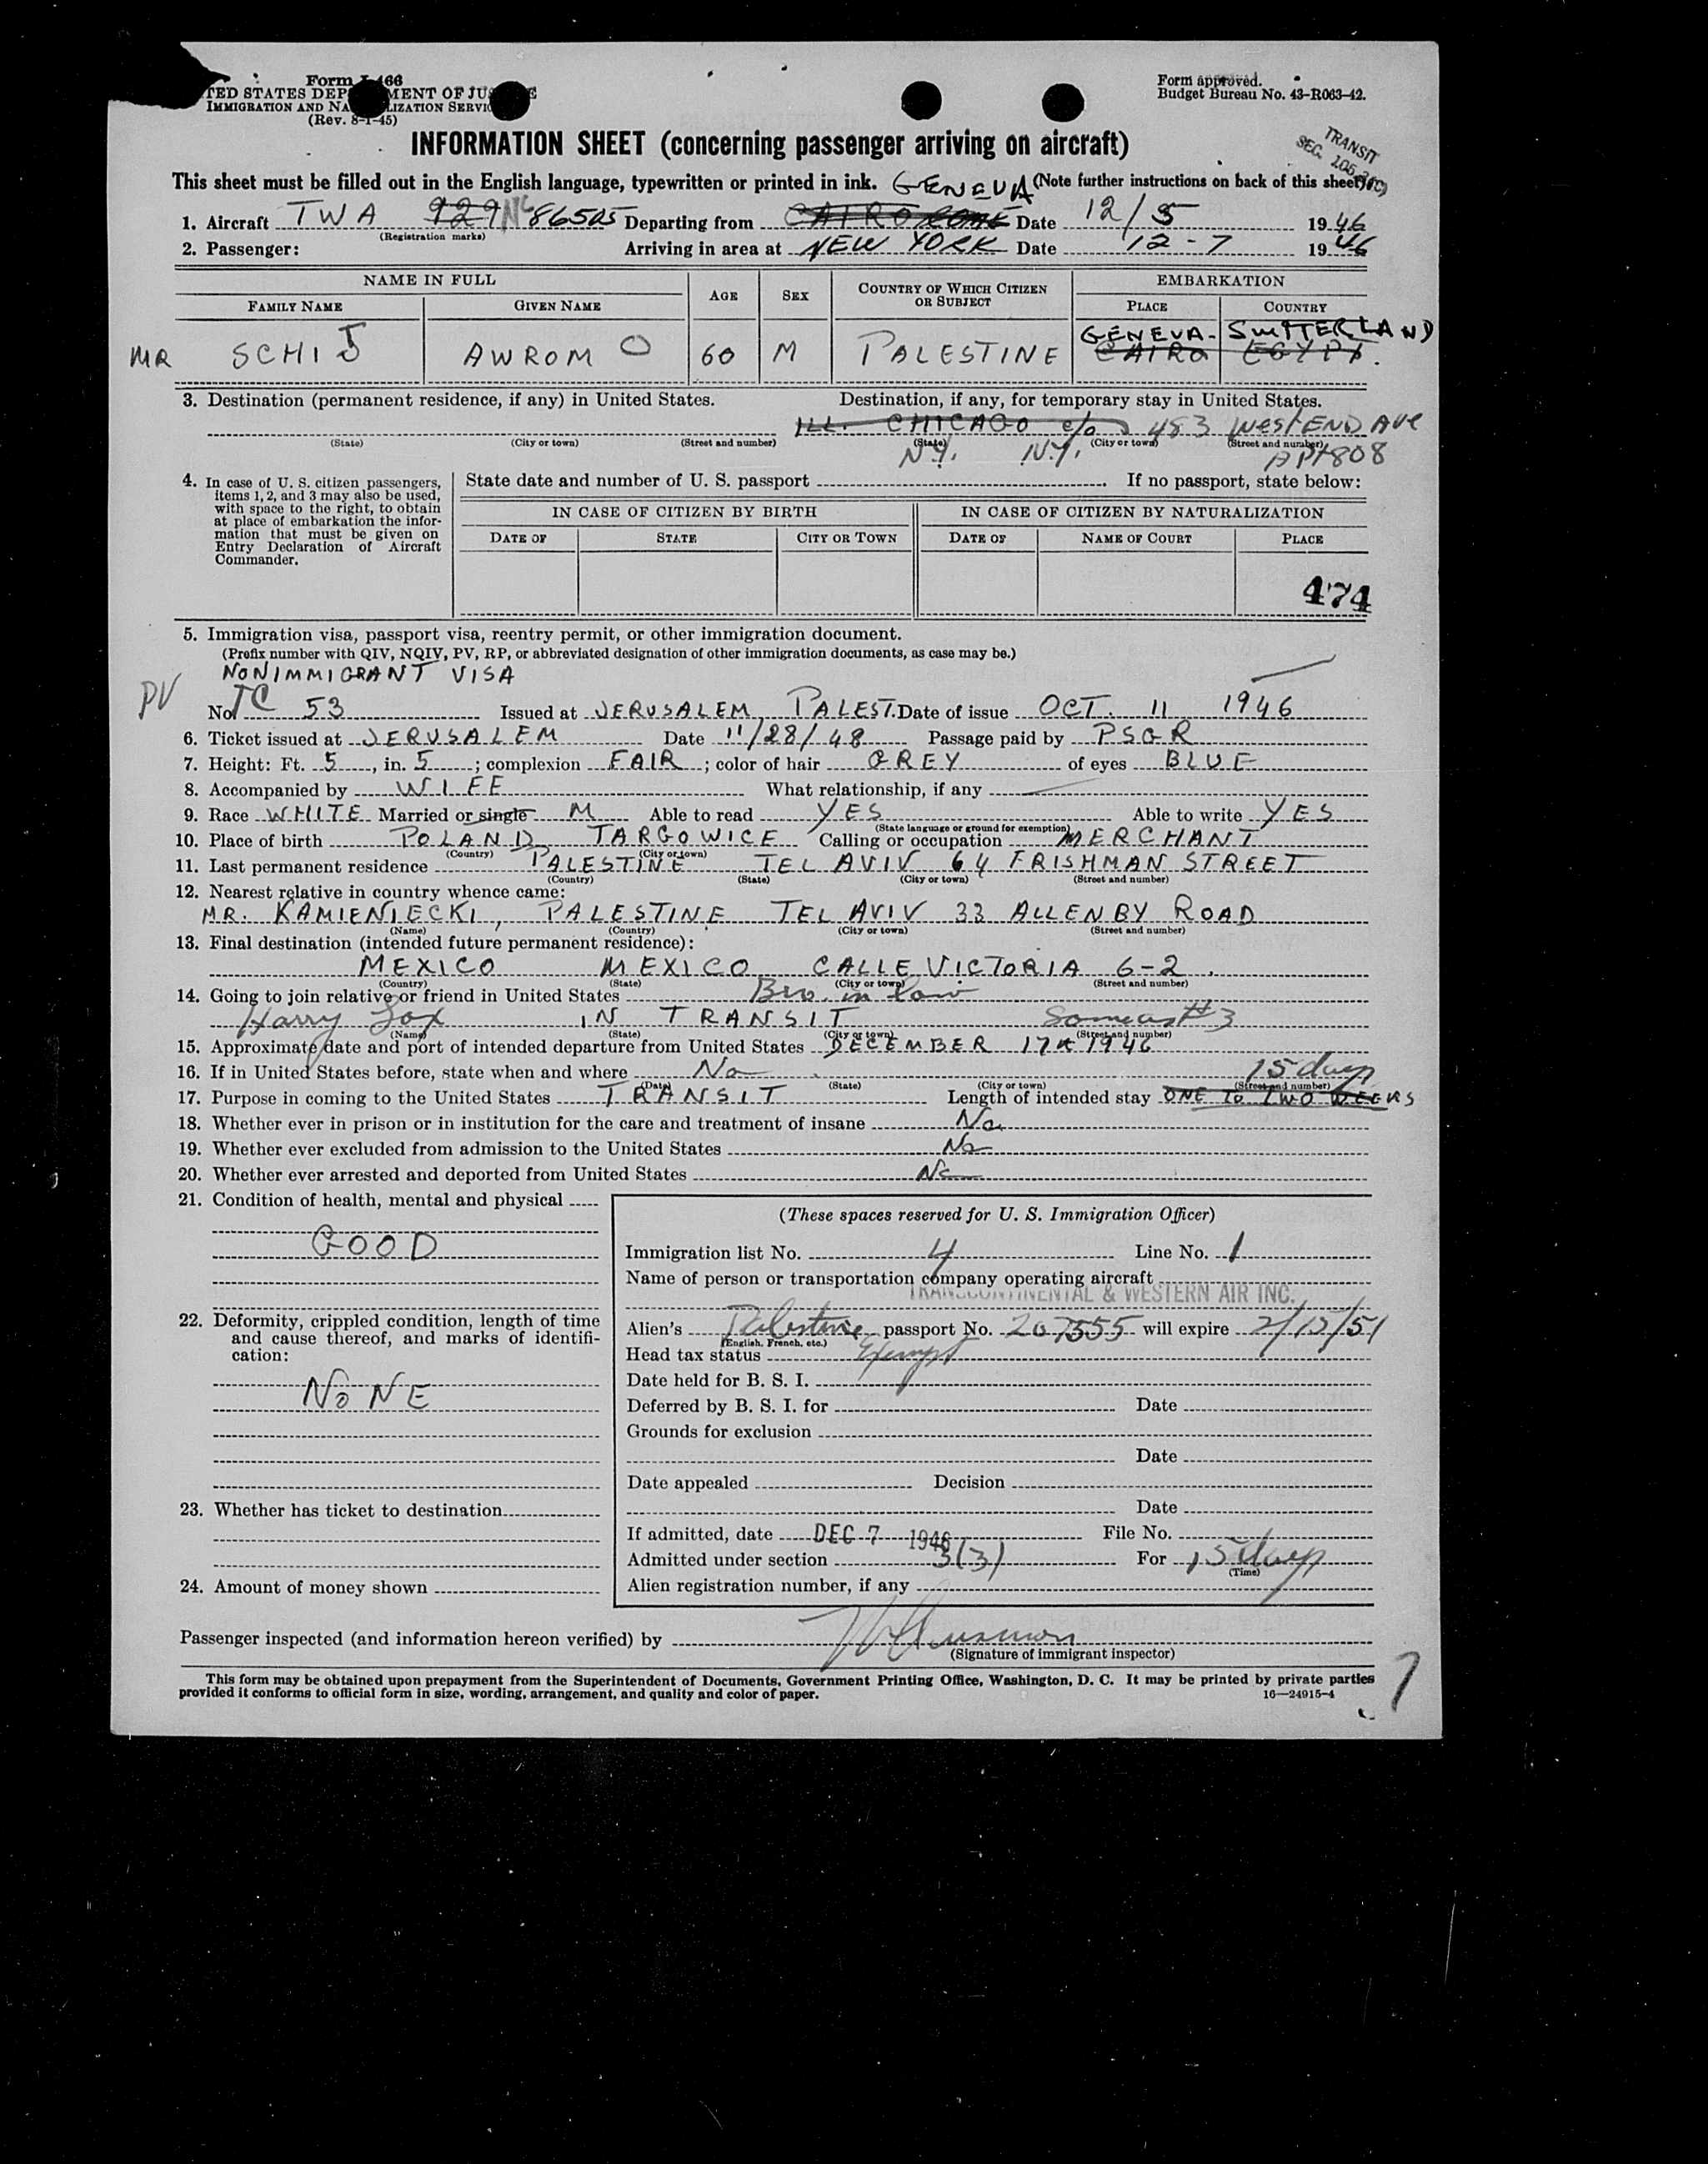 Form I-466
TED STATES DEP MENT OF JUS E
IMMIGRATION AND NA LIZATION SERVIC
(Rev. 8-1-45)
Form approved.
Budget Bureau No. 43-R063-42.
INFORMATION SHEET (concerning passenger arriving on aircraft)
TRANSIT
SEC.
This sheet must be filled out in the English language, typewritten or printed in ink. GENEVA (Note further instructions on back of this sheet)
1. Aircraft TWA 929 NC 86505 Departing from CAIRO ROME Date 12/5 1946
(Registration marks)
2. Passenger: Arriving in area at NEW YORK Date 12-7 1946
NAME IN FULL AGE SEX COUNTRY OF WHICH CITIZEN OR SUBJECT EMBARKATION
FAMILY NAME GIVEN NAME PLACE COUNTRY
GENEVA- SWITTERLAND
MR SCHIJ AWROM O 60 M PALESTINE CAIRO EGYPT.
3. Destination (permanent residence, if any) in United States. Destination, if any, for temporary stay in United States.
ILL. CHICAGO c/o 483 West END AVE
(State) (City or town) (Street and number) (State) (City or town) (Street and number)
N.Y. N.Y. APT 808
4. In case of U. S. citizen passengers, items 1, 2, and 3 may also be used, with space to the right, to obtain at place of embarkation the information that must be given on Entry Declaration of Aircraft Commander.
State date and number of U. S. passport . If no passport, state below:
IN CASE OF CITIZEN BY BIRTH IN CASE OF CITIZEN BY NATURALIZATION
DATE OF STATE CITY OR TOWN DATE OF NAME OF COURT PLACE
474
5. Immigration visa, passport visa, reentry permit, or other immigration document.
(Prefix number with QIV, NQIV, PV, RP, or abbreviated designation of other immigration documents, as case may be.)
NONIMMIGRANT VISA
PV No. TC 53 Issued at JERUSALEM PALEST. Date of issue OCT. 11 1946
6. Ticket issued at JERUSALEM Date 11/28/48 Passage paid by PSGR
7. Height: Ft. 5, in. 5; complexion FAIR; color of hair GREY of eyes BLUE
8. Accompanied by WIFE What relationship, if any
9. Race WHITE Married or single M Able to read YES Able to write YES
(State language or ground for exemption)
10. Place of birth POLAND TARGOWICE Calling or occupation MERCHANT
(Country) (City or town)
11. Last permanent residence PALESTINE TEL AVIV 64 FRISHMAN STREET
(Country) (State) (City or town) (Street and number)
12. Nearest relative in country whence came:
MR. KAMIENIECKI, PALESTINE TEL AVIV 33 ALLENBY ROAD
(Name) (Country) (City or town) (Street and number)
13. Final destination (intended future permanent residence):
MEXICO MEXICO CALLE VICTORIA 6-2.
(Country) (State) (City or town) (Street and number)
14. Going to join relative or friend in United States Bro. in law
Harry IN TRANSIT Same as #3
(Name) (State) (City or town) (Street and number)
15. Approximate date and port of intended departure from United States DECEMBER 17th 1946
16. If in United States before, state when and where No
(Date) (State) (City or town) (Street and number)
15 days
17. Purpose in coming to the United States TRANSIT Length of intended stay ONE TO TWO WEEKS
18. Whether ever in prison or in institution for the care and treatment of insane No
19. Whether ever excluded from admission to the United States No
20. Whether ever arrested and deported from United States No
21. Condition of health, mental and physical
GOOD
22. Deformity, crippled condition, length of time and cause thereof, and marks of identification:
NONE
23. Whether has ticket to destination
24. Amount of money shown
(These spaces reserved for U. S. Immigration Officer)
Immigration list No. 4 Line No. 1
Name of person or transportation company operating aircraft
TRANSCONTINENTAL & WESTERN AIR INC.
Alien's Palestine passport No. 207555 will expire 2/15/51
(English, French, etc.)
Head tax status Exempt
Date held for B. S. I.
Deferred by B. S. I. for Date
Grounds for exclusion
Date
Date appealed Decision
Date
If admitted, date DEC 7 1946 File No.
Admitted under section 3(3) For 15 days
(Time)
Alien registration number, if any
Passenger inspected (and information hereon verified) by
(Signature of immigrant inspector)
This form may be obtained upon prepayment from the Superintendent of Documents, Government Printing Office, Washington, D. C. It may be printed by private parties
provided it conforms to official form in size, wording, arrangement, and quality and color of paper. 16—24915-4